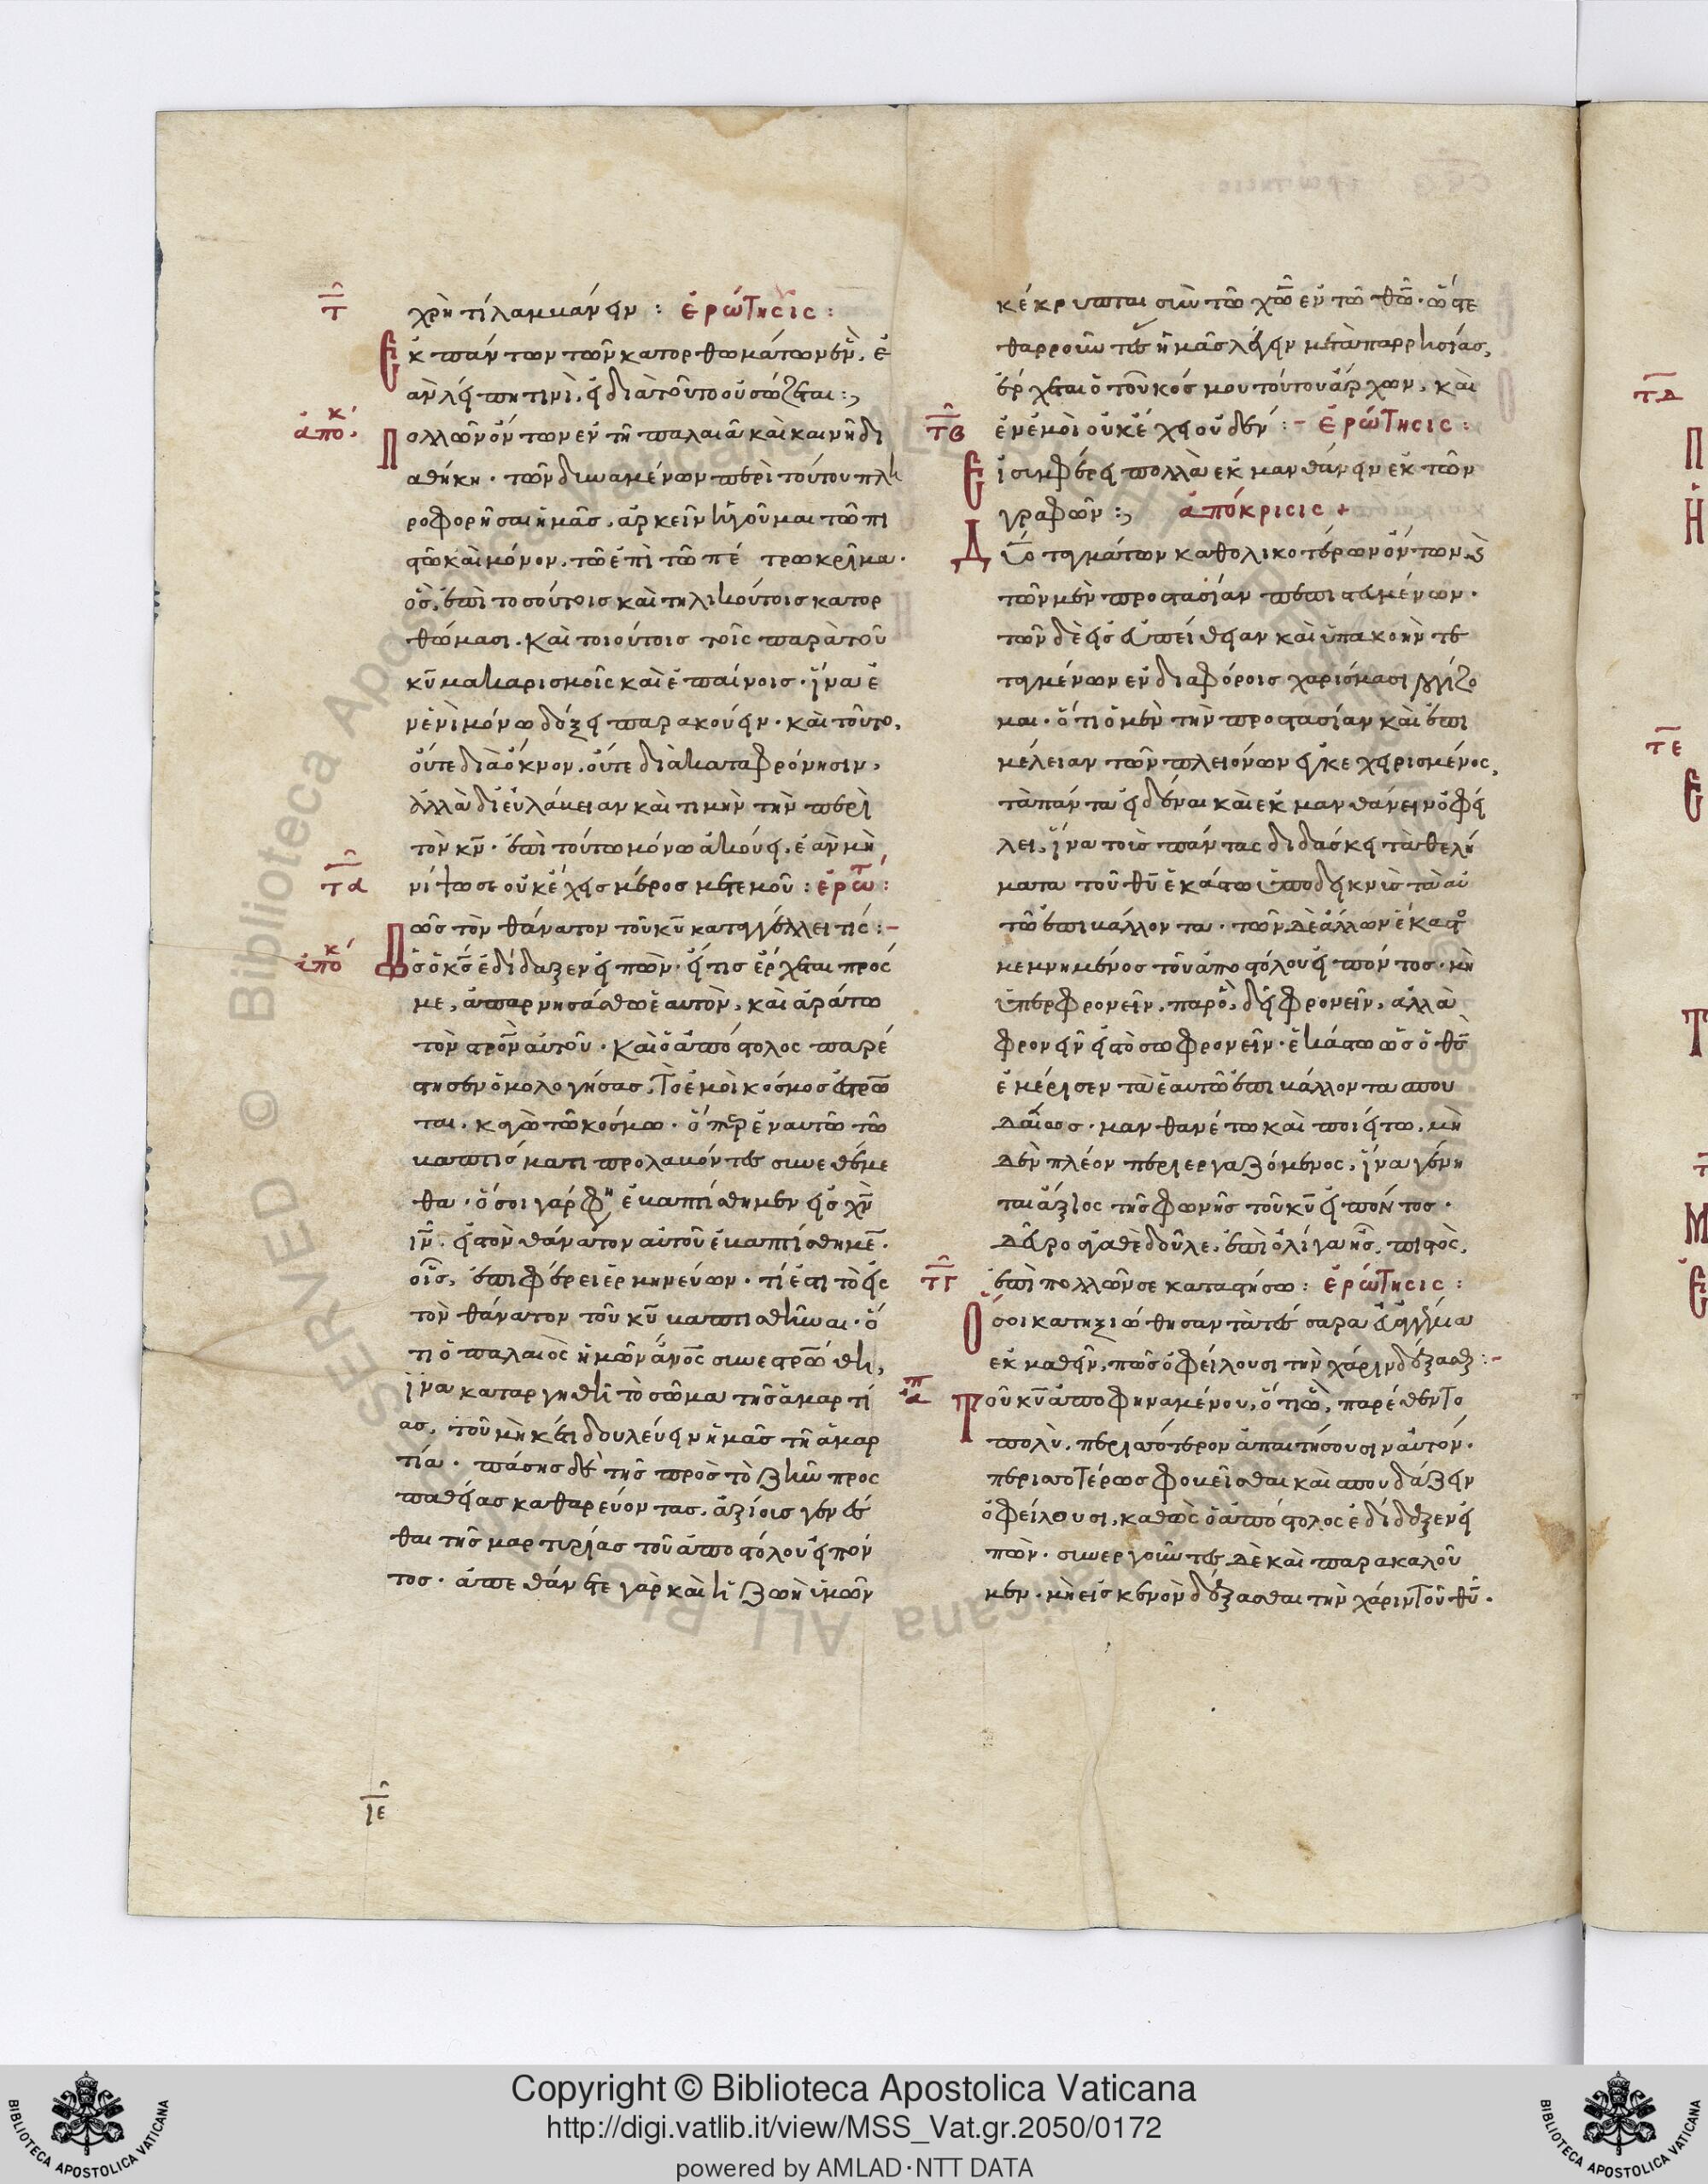 τ
χρὴ τί λαμβάνειν : ἐρώτησις :
Ἐκ πάντων τῶν κατορθωμάτων ἓν, ἐ
ὰν λείπη τινὶ, εἰ διὰ τοῦτο οὐ σώζεται :
ἀποκ
Πολλῶν ὄντων ἐν τῆ παλαιᾶ καὶ καινῆ δι
αθήκη· τῶν δυναμένων περὶ τούτου πλη
ροφορῆσαι ἡμᾶς, ἀρκεῖν ἡγοῦμαι τῶ πι
στῶ καὶ μόνον, τῶ ἐπὶ τῶ πέτρω κρῖμα·
ὃς, ἐπὶ τοσούτοις καὶ τηλικούτοις κατορ
θώμασι. Καὶ τοιούτοις τοῖς παρὰ τοῦ
κυ μακαρισμοῖς καὶ ἐπαίνοις· ἵνα ἐ
ν ἑνὶ μόνω δόξει παρακούειν· καὶ τοῦτο,
οὔτε διὰ ὄκνον, οὔτε διὰ καταφρόνησιν,
ἀλλὰ δι εὐλάβειαν καὶ τιμὴν τὴν περὶ
τὸν κν· ἐπὶ τούτω μόνω ἀκούει, ἐὰν μὴ
τα
νίψω σε οὐκ ἔχεις μέρος μετ ἐμοῦ : ἐρωτ :
Πῶς τὸν θάνατον τοῦ κυ καταγγέλλει τίς :-
ἀποκ
Ὡς ὁ κς ἐδίδαξεν εἰπών· εἴ τις ἔρχεται πρός
με, ἀπαρνησάσθω ἑαυτὸν, καὶ ἀράτω
τὸν στρον αὐτοῦ. Καὶ ὁ ἀπόστολος παρέ
στησεν ὁμολογήσας, ἐμοὶ κόσμος ἐστρω
ται, κἀγὼ τῶ κόσμω· ὅπερ ἐν αὐτῶ τῶ
βαπτίσματι προλαβόντες συνεθέμε
θα· ὅσοι γάρ φη ἐβαπτίσθημεν εἰς χν
ιν, εἰς τὸν θάνατον αὐτοῦ ἐβαπτίσθημε·
οἷς, ἐπιφέρει ἑρμηνεύων· τί ἐστι τὸ εἰς
τὸν θάνατον τοῦ κυ βαπτισθῆναι· ὅ
τι ὁ παλαιὸς ἡμῶν ἄνος συνεστρώθη,
ἵνα καταργηθῆ τὸ σῶμα τῆς ἁμαρτί
ας, τοῦ μηκέτι δουλεύειν ἡμᾶς τῆ ἁμαρ
τία· πάσης δὲ τῆς πρὸς τὸ ζῆν προς
παθείας καθαρεύοντας, ἀξίους γενέσ
θαι τῆς μαρτυρίας τοῦ ἀποστόλου εἰπόν
τος· ἀπεθάνετε γὰρ καὶ ἡ ζωὴ ὑμῶν
ιε
κέκρυπται σὺν τῶ χω ἐν τῶ θω· ὥστε
θαρροῦντες ἡμᾶς λέγειν μετὰ παρρησίας,
ἔρχεται ὁ τοῦ κόσμου τούτου ἄρχων, καὶ
τβ
ἐν ἐμοὶ οὐκ ἔχει οὐδέν :- ἐρώτησις :
Εἰ συμφέρει πολλὰ ἐκμανθάνειν ἐκ τῶν
γραφῶν : ἀπόκρισις +
Δύο ταγμάτων καθολικοτέρων ὄντων,
τῶν μὲν προστασίαν πεπιστευμένων·
τῶν δὲ εἰς εὐπείθειαν καὶ ὑπακοὴν τε
ταγμένων ἐν διαφόροις χαρίσμασι λογίζο
μαι· ὅτι ὁ μὲν τὴν προστασίαν καὶ ἐπι
μέλειαν τῶν πλειόνων ἐγκεχειρισμένος,
τὰ πάντα εἰδέναι καὶ ἐκμανθάνειν ὀφεί
λει, ἵνα τοὺς πάντας διδάσκει τὰ θελή
ματα τοῦ θυ ἑκάστω ὑποδεικνὺς τὰ αὐ
τῶ ἐπιβάλλοντα· τῶν δὲ ἄλλων ἕκαστο
μεμνημένος τοῦ ἀποστόλου εἰπόντος· μὴ
ὑπερφρονεῖν, παρ ὃ, δεῖ φρονεῖν, ἀλλὰ
φρονεῖν εἰς τὸ σωφρονεῖν· ἑκάστω ὡς ὁ θς
ἐμέρισεν τὰ ἑαυτῶ ἐπιβάλλοντα σπου
δαίως· μανθανέτω καὶ ποιείτω, μη
δὲν πλέον περιεργαζόμενος, ἵνα γένη
ται ἄξιος τῆς φωνῆς τοῦ κυ εἰπόντος·
δεῦρο ἀγαθὲ δοῦλε, ἐπὶ ὀλίγα ἦς, πιστὸς,
τγ
ἐπὶ πολλῶν σε καταστήσω : ἐρώτησις :
Ὅσοι κατηξιώθησαν τὰ τέσσαρα εὐαγγέλια
ἐκμαθεῖν, πῶς ὀφείλουσι τὴν χάριν δέξασθαι :-
απ
Τοῦ κυ ἀποφηναμένου, ὅτι ᾧ, παρέθεντο
πολὺ, περισσότερον ἀπαιτήσουσιν αὐτόν·
περισσοτέρως φοβεῖσθαι καὶ σπουδάζειν
ὀφείλουσι, καθὼς ὁ ἀπόστολος ἐδίδαξεν εἰ
πών· συνεργοῦντες δὲ καὶ παρακαλοῦ
μεν· μὴ εἰς κενὸν δέξασθαι τὴν χάριν τοῦ θυ·
τδ
Π
Η
Τ
τε
Ε
Μ
Ε
Copyright © Biblioteca Apostolica Vaticana
http://digi.vatlib.it/view/MSS_Vat.gr.2050/0172
powered by AMLAD·NTT DATA
BIBLIOTECA APOSTOLICA VATICANA
BIBLIOTECA APOSTOLICA VATICANA